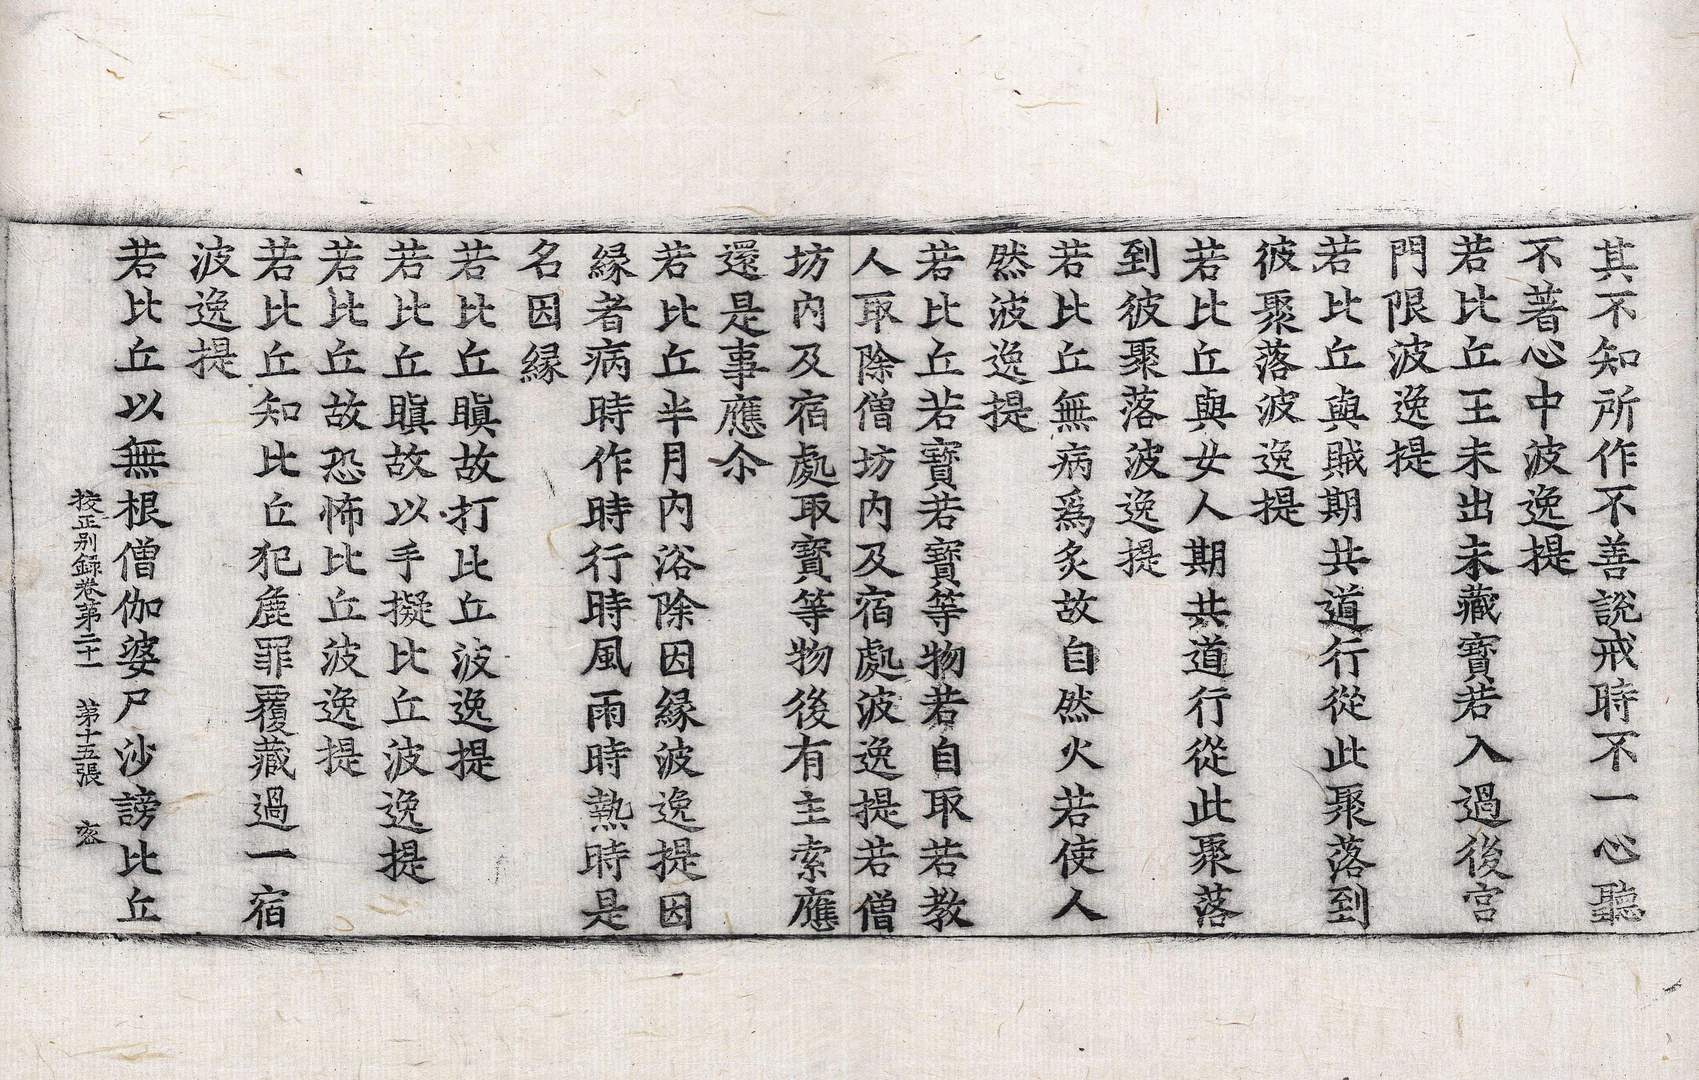 其不知所作不善說戒時不一心聽
不著心中波逸提
若比丘王未出未藏寶若入過後宮
門限波逸提
若比丘與賊期共道行從此聚落到
彼聚落波逸提
若比丘與女人期共道行從此聚落
到彼聚落波逸提
若比丘無病爲炙故自然火若使人
然波逸提
若比丘若寶若寶等物若自取若教
人取除僧坊內及宿處波逸提若僧
坊內及宿處取寶等物後有主索應
還是事應尒
若比丘半月內浴除因緣波逸提因
緣者病時作時行時風雨時熱時是
名因緣
若比丘瞋故打比丘波逸提
若比丘瞋故以手擬比丘波逸提
若比丘故恐怖比丘波逸提
若比丘知比丘犯麁罪覆藏過一宿
波逸提
挍正别錄卷第二十一 第十五張 密
若比丘以無根僧伽婆尸沙謗比丘